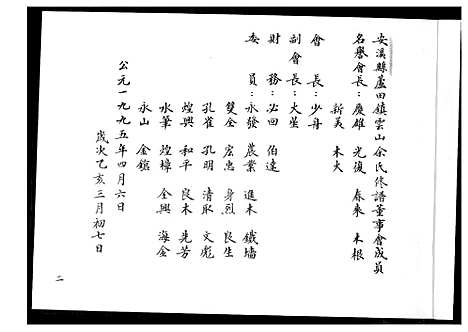 安溪縣蘆田鎮雲山余氏修譜董事會成員
名譽會長：慶雄 光復 春來 木根
新美 木火
會長：少舟
副會長：火坐
財務：必回 伯達
委員：永發 農業 進木 鐵墻
雙全 宏忠 身烈 良生
孔雀 孔明 清取 文彪
煌興 和平 良木 先芳
水華 煌樟 全興 海金
永山 金鎮
公元一九九五年四月六日
歲次乙亥三月初七日
二